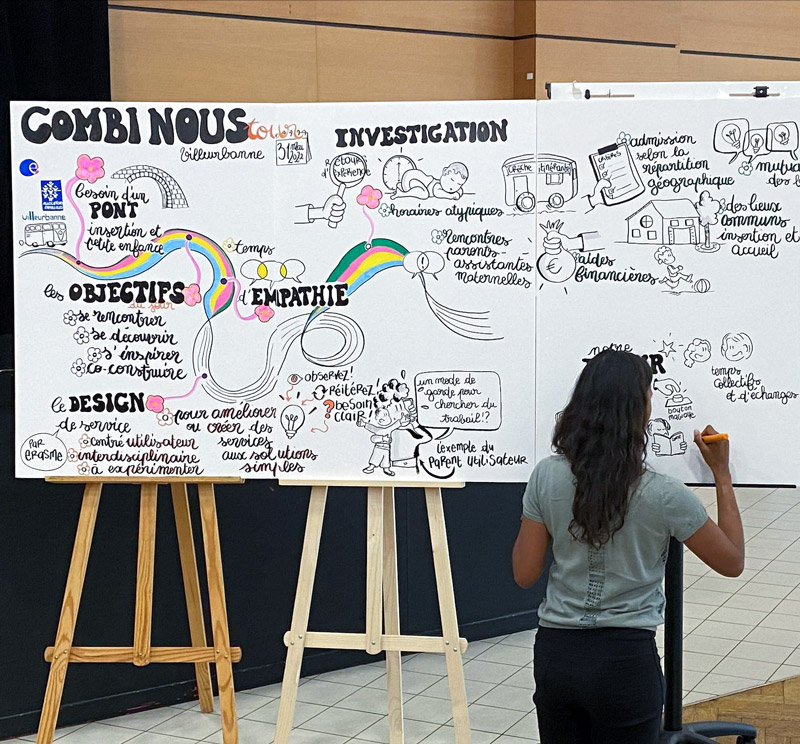 COMBI NOUS
tour
Villeurbanne
31 mai
2022
besoin d'un
PONT
insertion et
petite enfance
villeurbanne
les OBJECTIFS
du jour
se rencontrer
se découvrir
s'inspirer
co-construire
temps
d'EMPATHIE
le DESIGN
de service
PAR
ERASME
centré utilisateur
interdisciplinaire
à expérimenter
pour améliorer
ou créer des
services
aux solutions
simples
INVESTIGATION
RETOUR
d'EXPÉRIENCE
horaires atypiques
rencontres
parents-
assistantes
maternelles
observez!
Réitérez!
besoin
clair
un mode de
garde pour
chercher du
travail!?
L'exemple du
PARENT UTILISATEUR
CRÈCHE itinérante
admission
selon la
répartition
géographique
des lieux
communs
insertion et
accueil
aides
financières
notre
temps
collectifs
et d'échanges
bouton
magique